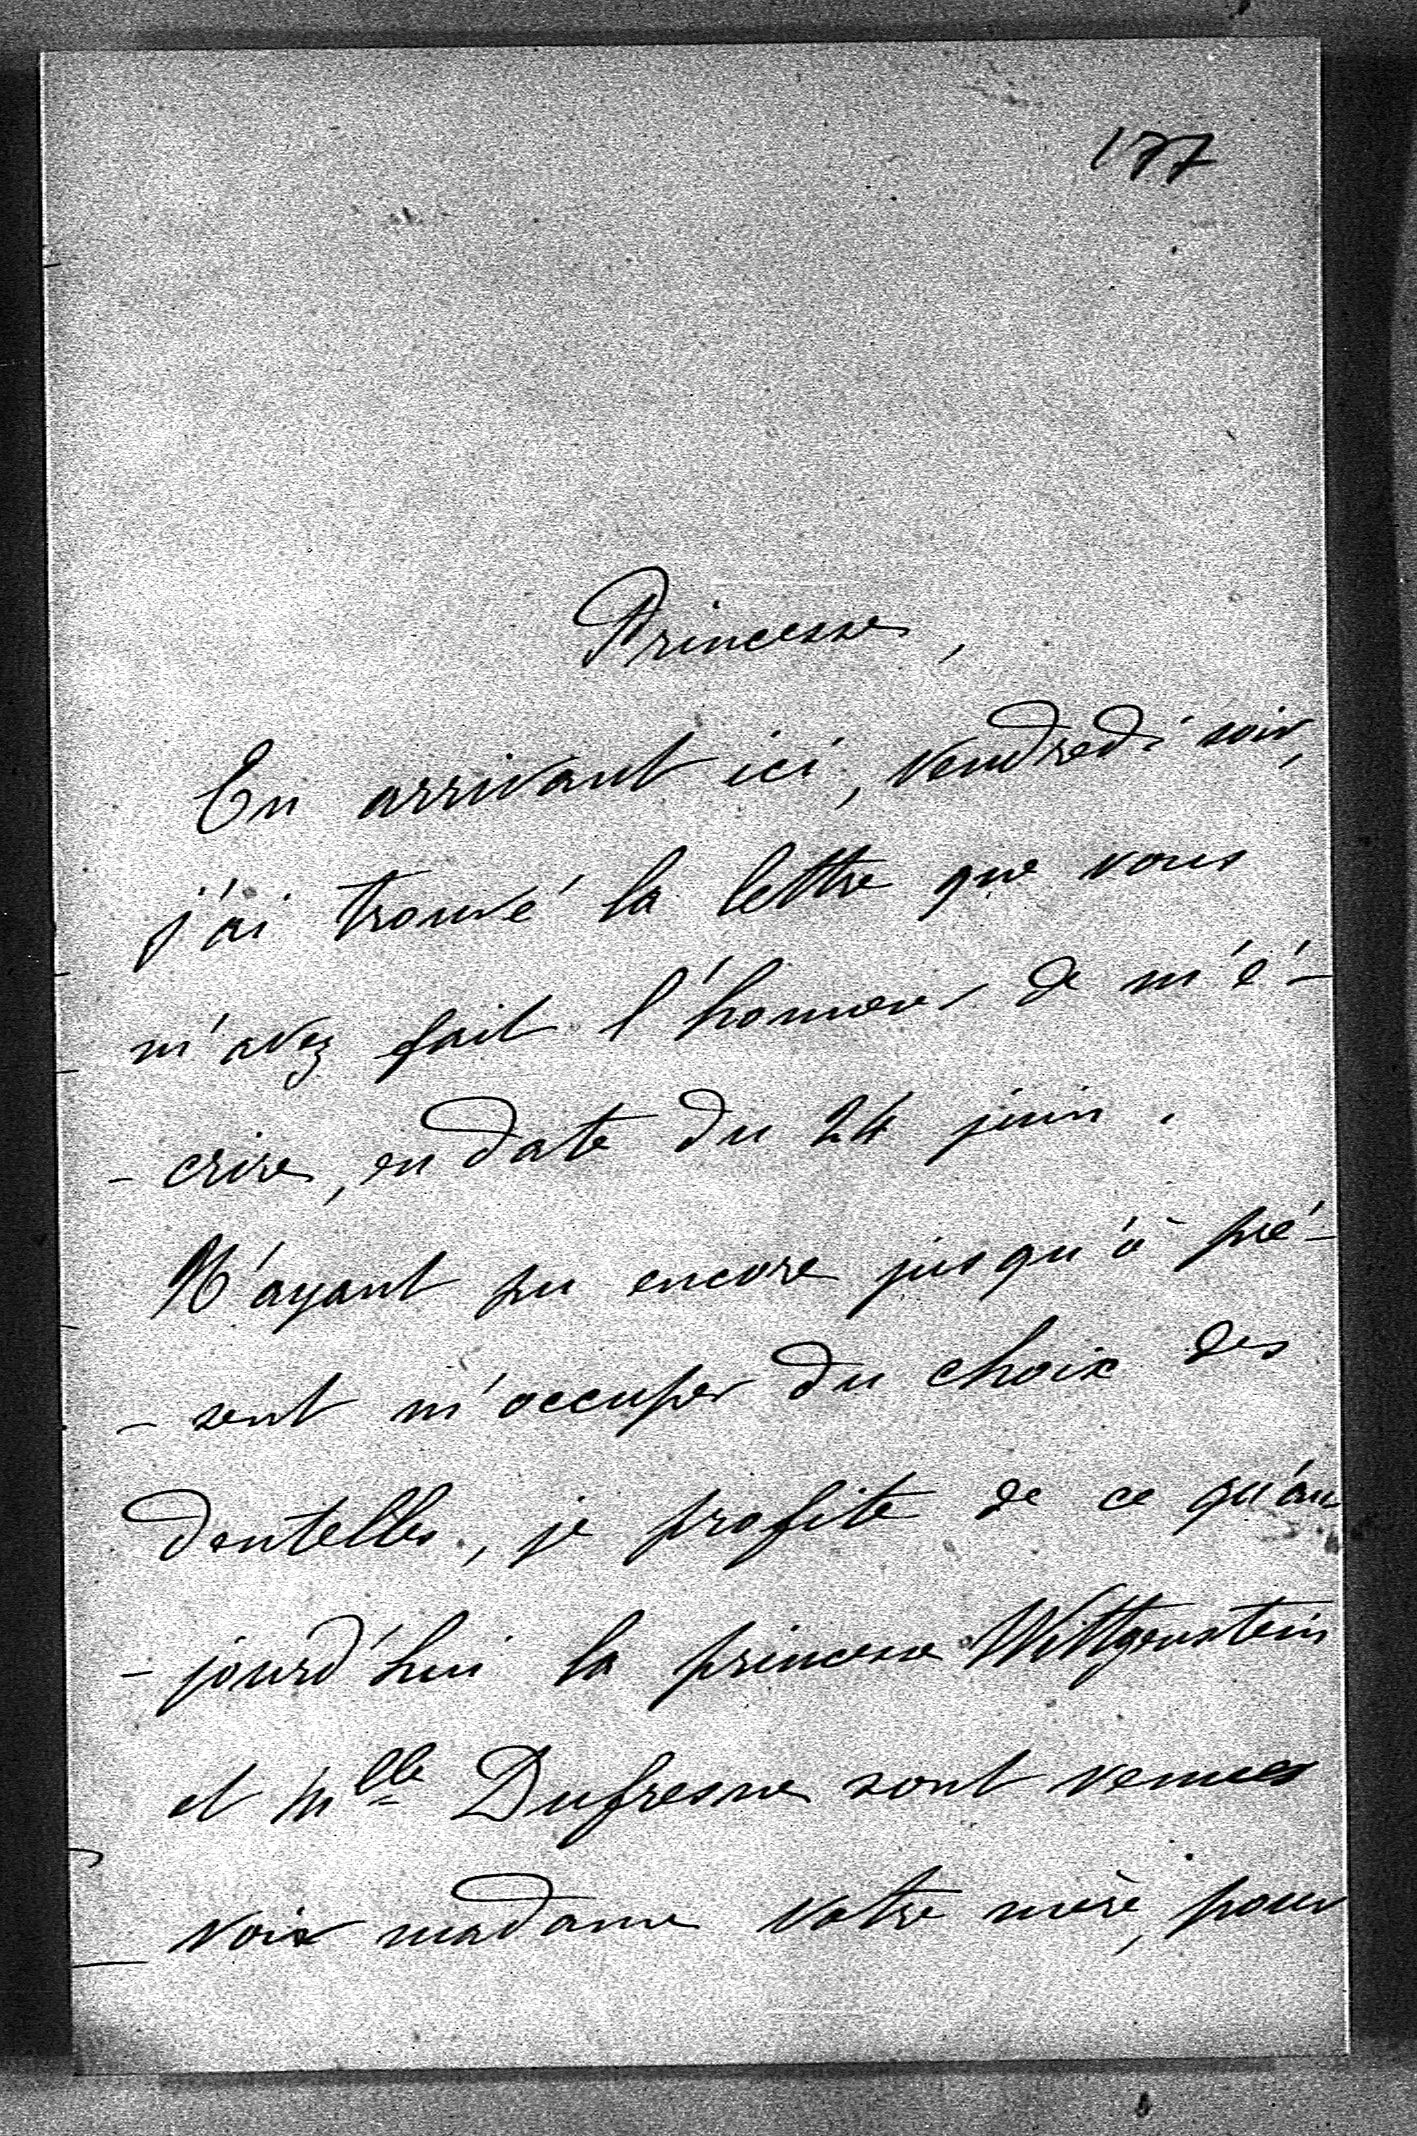 177
Princesse,
En arrivant ici, vendredi soir,
j'ai trouvé la lettre que vous
m'avez fait l'honneur de m'é-
- crire, en date du 24 juin.
N'ayant pu encore jusqu'à pré-
- sent m'occuper du choix des
dentelles, je profite de ce qu'au
- jourd'hui la princesse Wittgenstein
et Mlle Dufresne sont venues
voir madame votre mère, pour